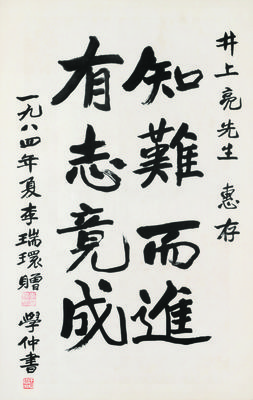 井上亮先生 惠存
知難而進
有志竟成
一九八四年夏李瑞環贈 學仲書